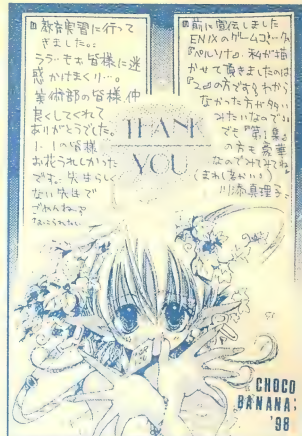 教育実習に行って
きました。。
ララ…もお皆様に迷
惑かけまくり…。
美術部の皆様仲
良くしてくれて
ありがとうでした。
1-1の皆様
お花うれしかった
です。先生らしく
ない先生で
ごめんね。
前に宣伝しました
ENIXのゲームコミック
『ペルソナ』私が描
かせて頂きましたのは
『2』の方です。わから
なかった方が多い
みたいなので…
でも『第1集』
の方も豪華
なのでみてみてね。
川添真理子
THANK
YOU
CHOCO
BANANA;
'98